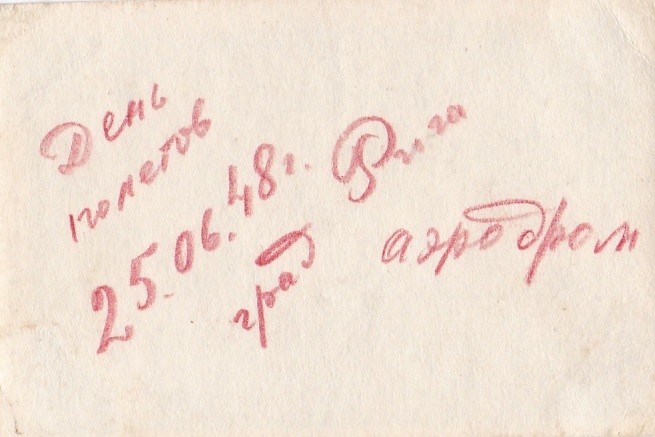 День
полетов
25.06.48г.
град Рига
аэродром